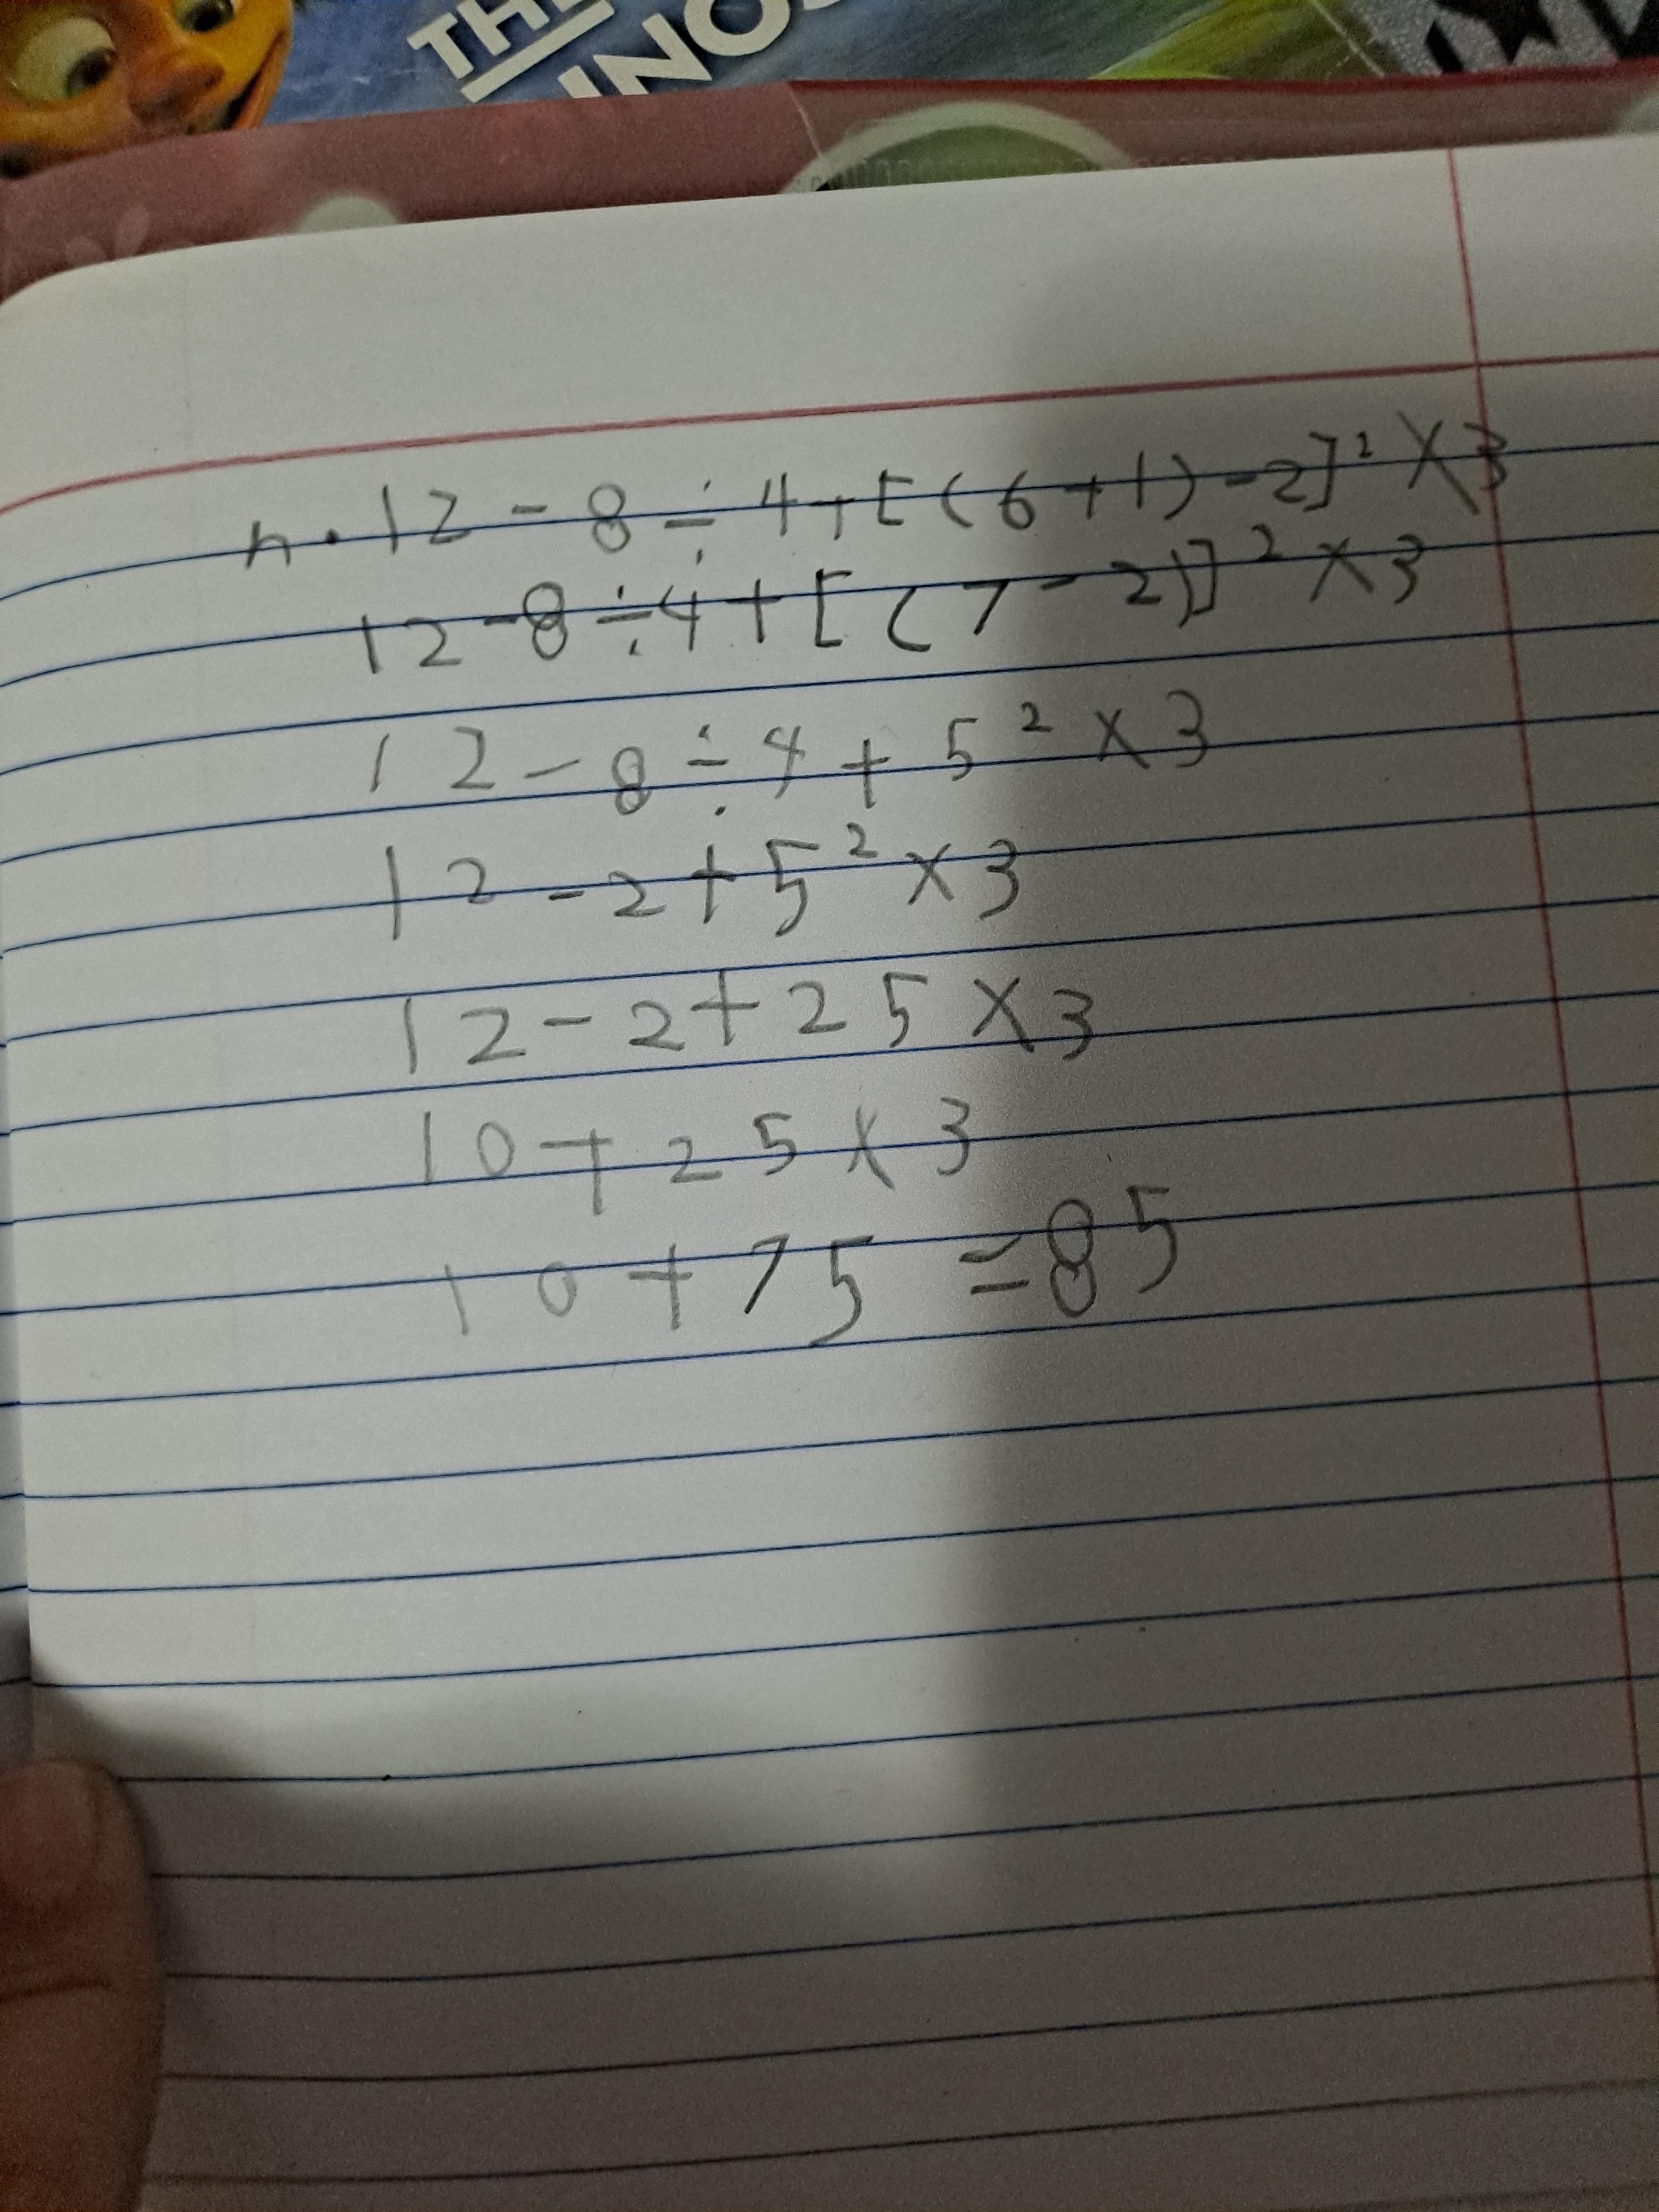 THE
INO
h. 12 - 8 ÷ 4 + [(6+1) - 2]² × 3
12 - 8 ÷ 4 + [(7 - 2)]² × 3
12 - 8 ÷ 4 + 5² × 3
12 - 2 + 5² × 3
12 - 2 + 25 × 3
10 + 25 × 3
10 + 75 = 85